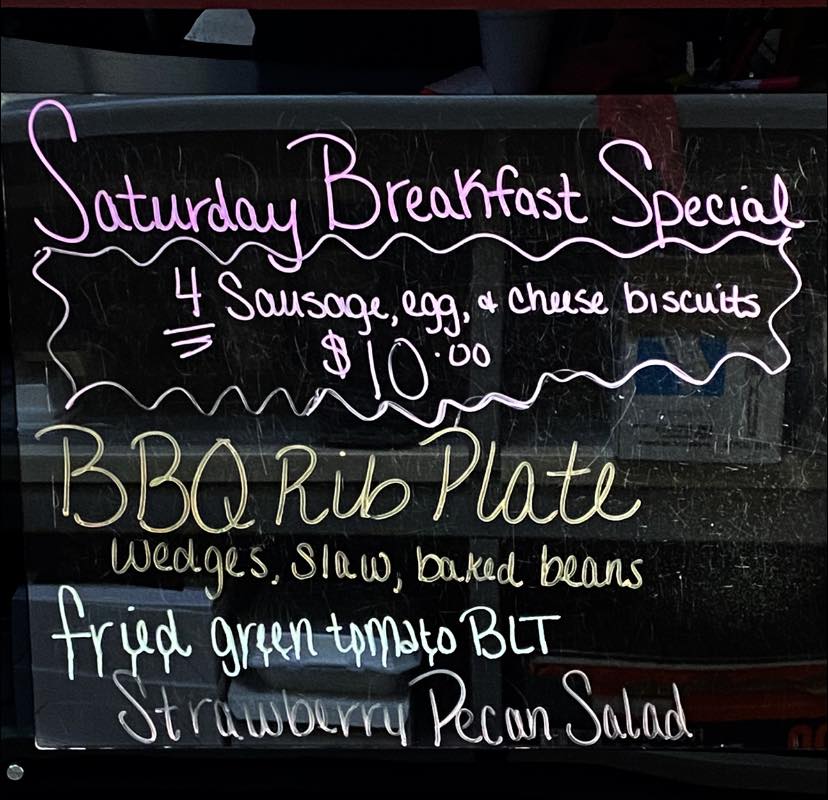 Saturday Breakfast Special
4 Sausage, egg, & cheese biscuits
$10.00
BBQ Rib Plate
Wedges, slaw, baked beans
fried green tomato BLT
Strawberry Pecan Salad